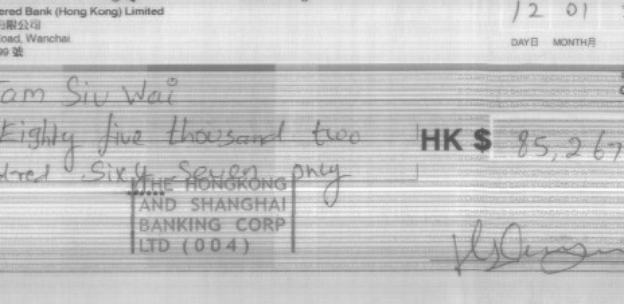 ered Bank (Hong Kong) Limited
有限公司
oad, Wanchai
99 號
12 01
DAY日 MONTH月
am Siu Wai
Eighty five thousand two
HK $ 85,267
dred Sixty Seven only
THE HONGKONG
AND SHANGHAI
BANKING CORP
LTD (004)